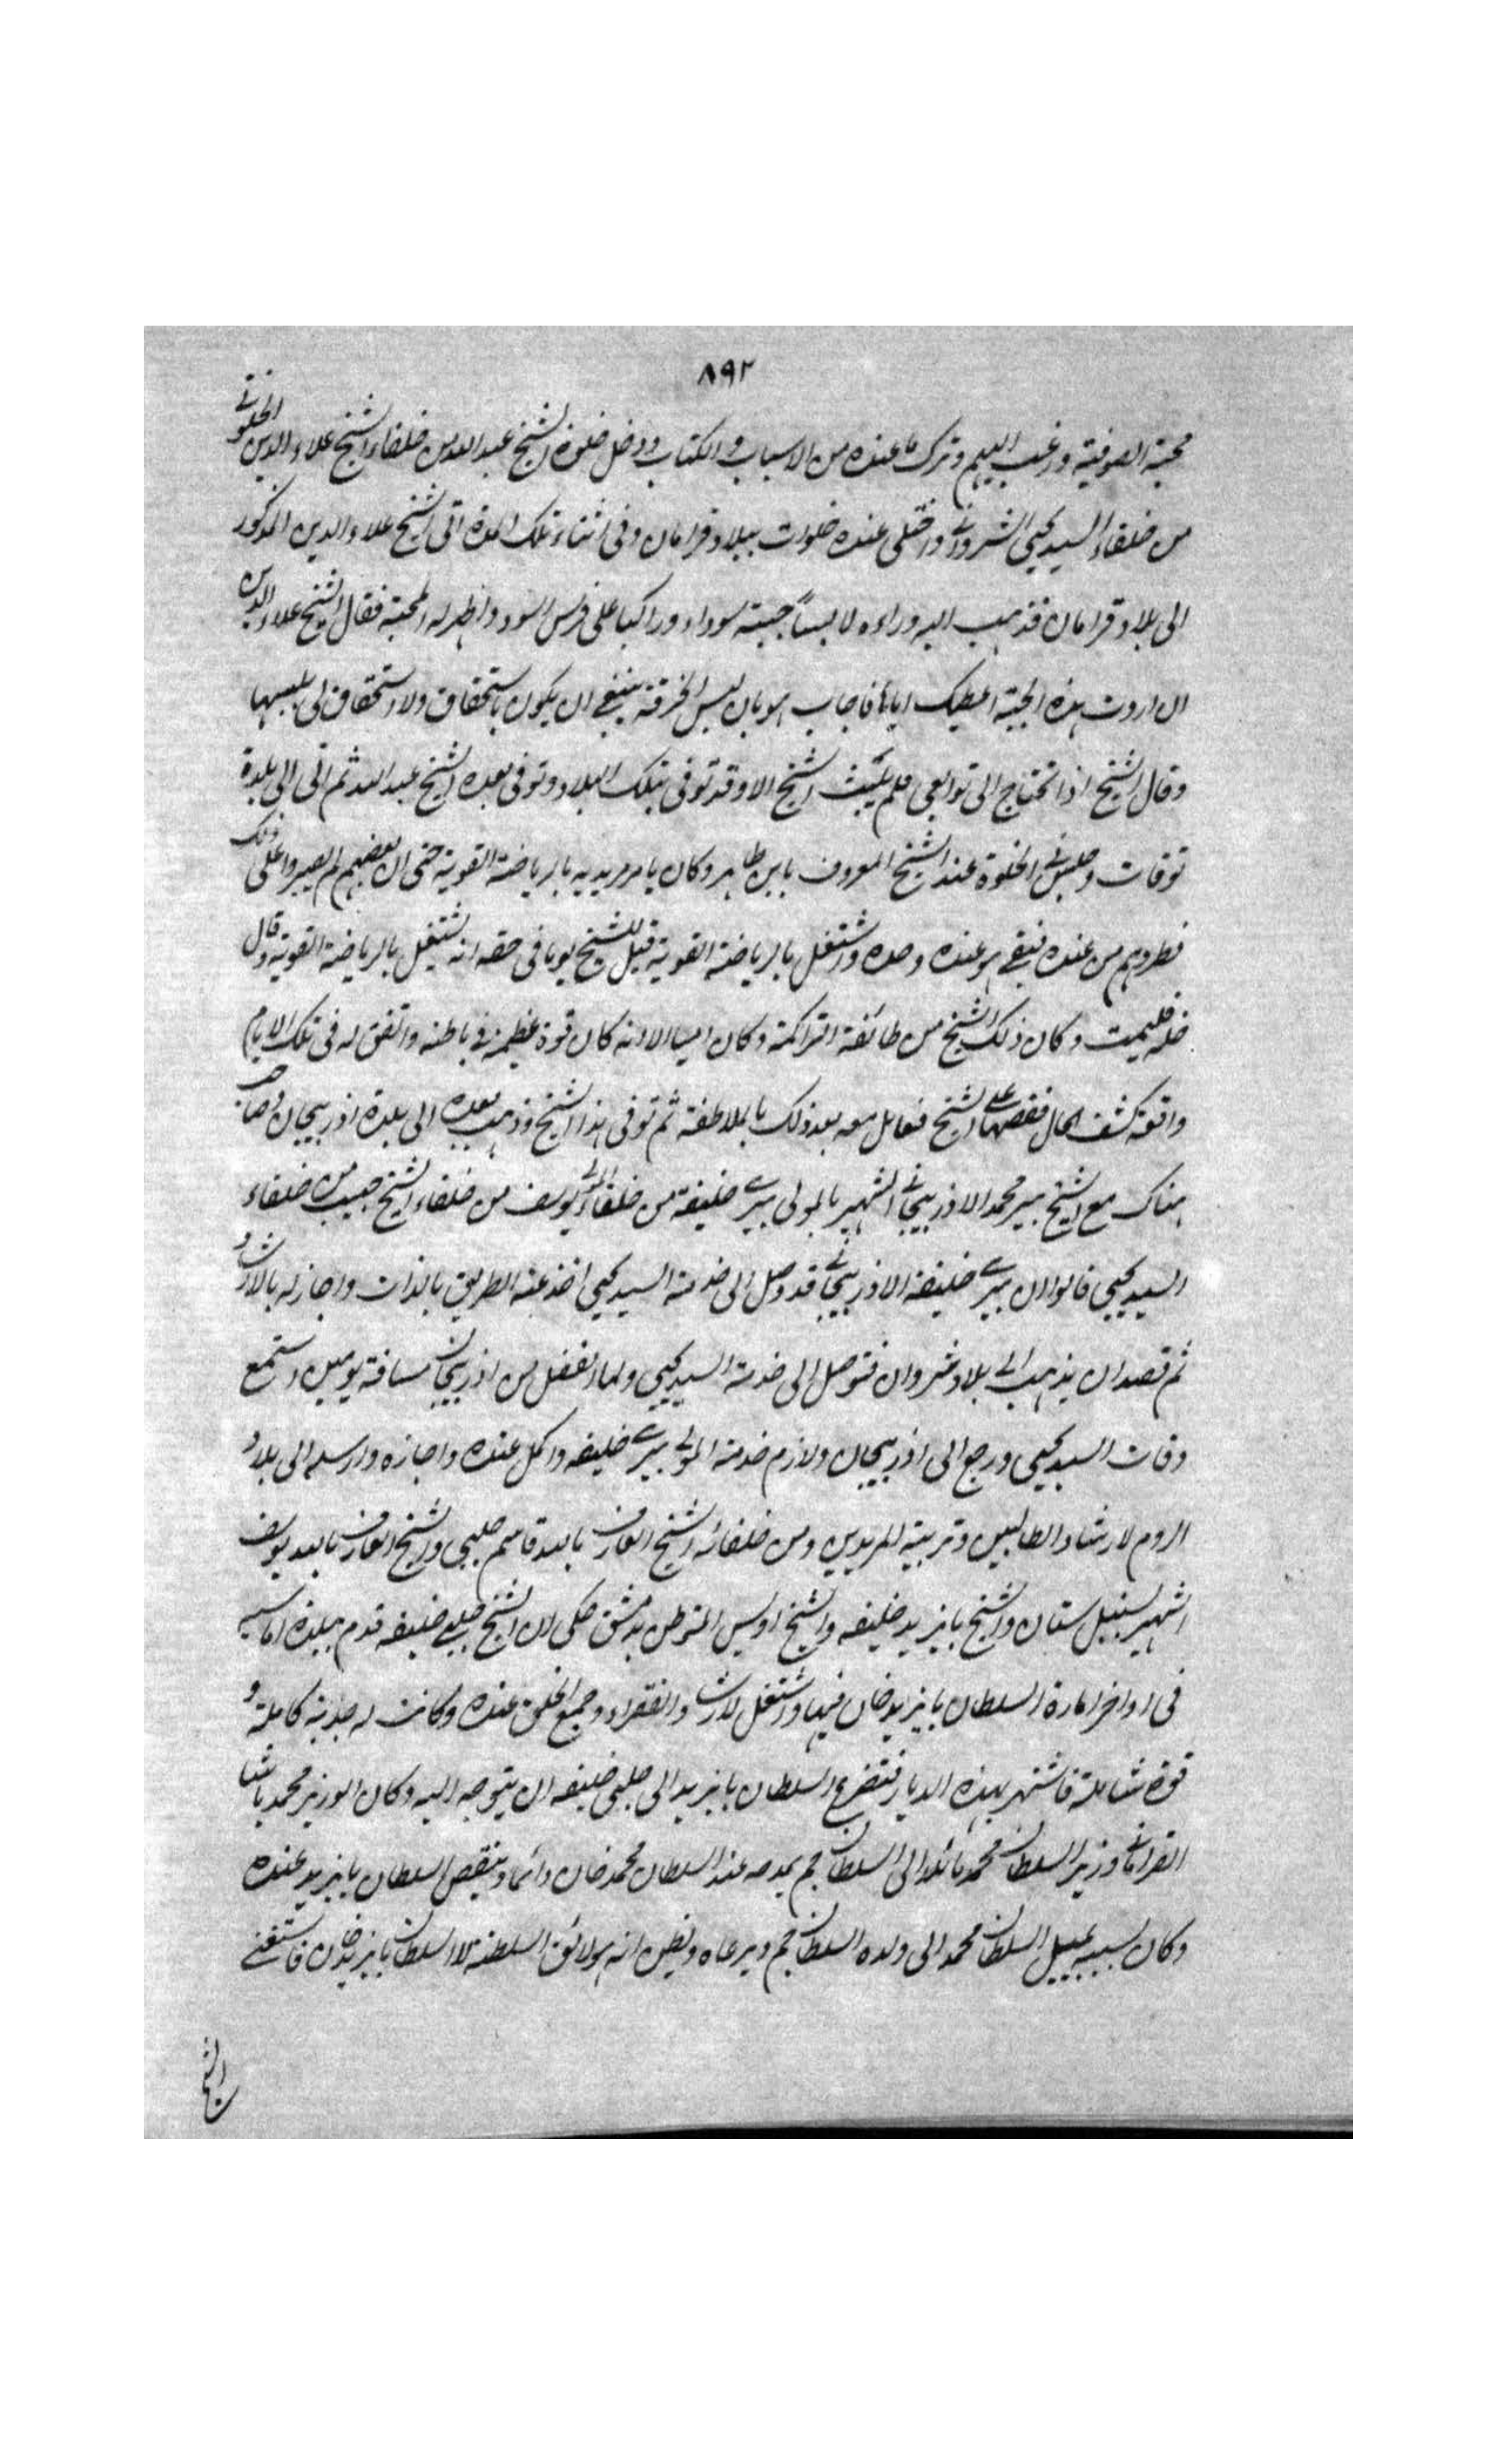 ٨٩٢
محبة الصوفية ورغب اليهم وترك ما عنده من الاسباب والكتاب ودخل خلوة الشيخ عبد الله من خلفاء الشيخ علاء الدين الخلوتى
من خلفاء السيد يحيى الشروانى واختلى عنده خلوات ببلاد قرامان وفى اثناء تلك المدة اتى الشيخ علاء الدين المذكور
الى بلاد قرامان فذهب اليه وراءه لابساً جبته سوداء وراكبا على فرس اسود واظهر له المحبة فقال الشيخ علاء الدين
ان اردت هذه الجبة اعطيك اياها فاجاب هو بان لبس الخرقة ينبغى ان يكون باستحقاق ولا استحقاق لى بلبسها
وقال الشيخ اذا تحتاج الى توابعى فلم يلبث الشيخ الا وقد توفى بتلك البلاد وتوفى بعده الشيخ عبد الله ثم اتى الى بلدة
توقات وجلس فى الخلوة عند الشيخ المعروف بابن طاهر وكان يامر مريديه بالرياضة القوية حتى ان بعضهم لم يصبروا على ذلك
فطردهم من عنده فبقى هو عنده وحده واشتغل بالرياضة القوية قيل للشيخ يوما فى حقه انه يشتغل بالرياضة القوية وقال
خله فليمت وكان ذلك الشيخ من طائفة التراكمة وكان اميا الا انه كان قوة عظيمة فى باطنه واتفق له فى تلك الايام
واقعة كشف الحال فقصها على الشيخ فعامل معه بعد ذلك بالملاطفة ثم توفى هذا الشيخ وذهب بعده الى بلدة اذربيجان وصاحب
هناك مع الشيخ پير محمد الاذربيجانى الشهير بالمولى پيرى خليفة من خلفاء المولى يوسف من خلفاء الشيخ حبيب من خلفاء
السيد يحيى قالوا ان پيرى خليفة الاذربيجانى قد وصل الى خدمة السيد يحيى اخذ عنه الطريق بالذات واجاز له بالارشاد
ثم قصد ان يذهب الى بلاد شروان فتوصل الى خدمة السيد يحيى ولما انفصل من اذربيجان مسافة يومين استمع
وفات السيد يحيى ورجع الى اذربيجان ولازم خدمة المولى پيرى خليفه واكمل عنده واجازه وارسله الى بلاد
الروم لارشاد الطالبين وتربية المريدين ومن خلفائه الشيخ العارف بالله قاسم چلبى والشيخ العارف بالله يوسف
الشهير بسنبل سنان والشيخ بايزيد خليفه والشيخ اويس المتوطن بدمشق حكى لان الشيخ چلبى خليفه قدم ببلدة اماسيه
فى اواخر امارة السلطان بايزيد خان فيها واشتغل لارشاد الفقراء وجمع الخلق عنده وكانت له جذبة كاملة و
قوة شاملة فاشتهر بهذه الديار فتضرع السلطان بايزيد الى چلبى خليفه ان يتوجه اليه وكان الوزير محمد پاشا
القرامانى وزير السلطان محمد مائلا الى السلطان جم يمدحه عند السلطان محمد خان دائما وينقص السلطان بايزيد عنده
وكان بسببه يميل السلطان محمد الى ولده السلطان جم ويرعاه ويظن انه هو لائق السلطنة لا السلطان بايزيد خان فاستغنى
الشيخ